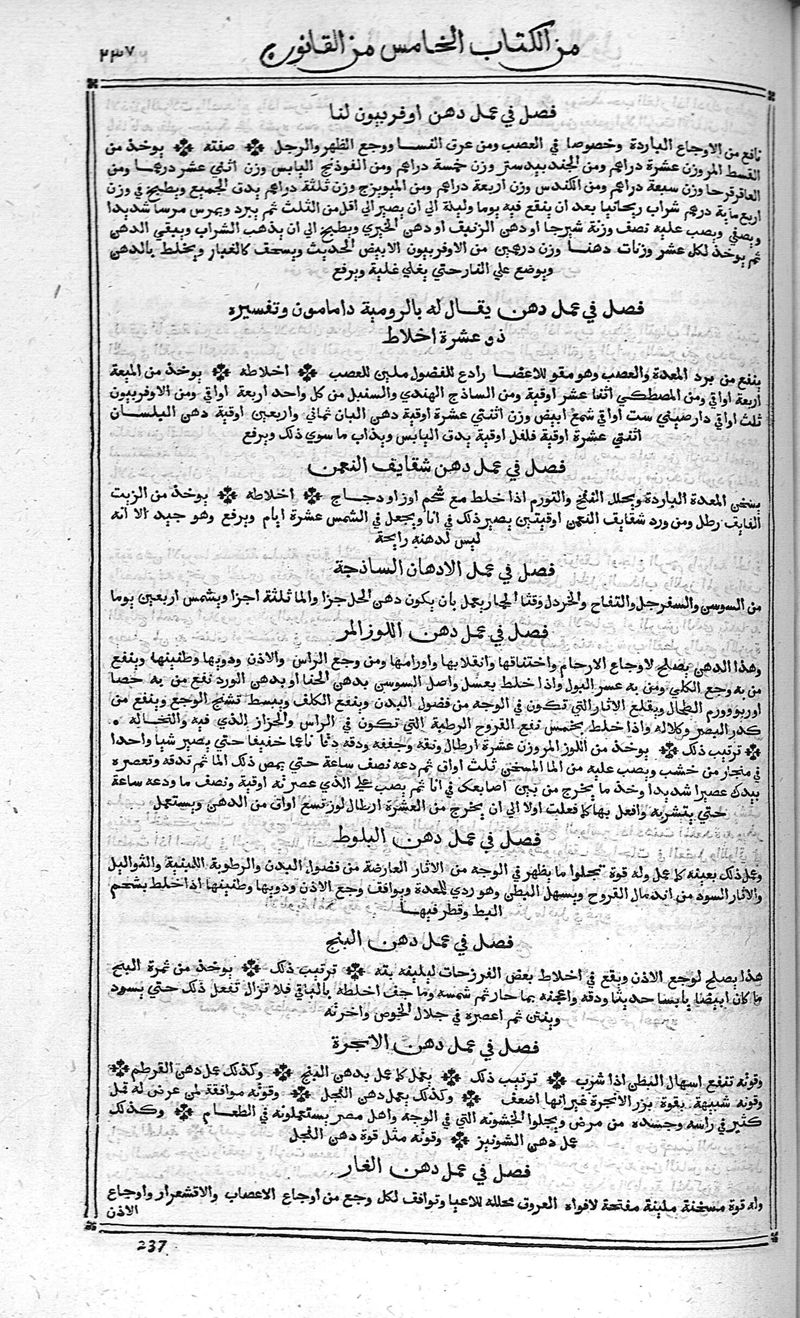 من الكتاب الخامس من القانون
٢٣٧
فصل في عمل دهن اوفربيون لنا
نافع من الاوجاع الباردة وخصوصا في العصب ومن عرق النسا ووجع الظهر والرجل صفته يوخذ من
القسط المر وزن عشرة دراهم ومن الجندبيدستر وزن خمسة دراهم ومن الفوذنج اليابس وزن اثني عشر درهما ومن
العاقرقرحا وزن سبعة دراهم ومن الكندس وزن اربعة دراهم ومن الميويزج وزن ثلثة دراهم يدق الجميع ويطبخ في وزن
اربع ماية درهم شراب ريحانيا بعد ان ينقع فيه يوما وليلة الي ان يصير الي اقل من الثلث ثم يبرد ويمرس مرسا شديدا
ويصفي ويصب عليه نصف وزنه شيرجا او دهن الزنبق او دهن الخيري ويطبخ الي ان يذهب الشراب ويبقي الدهن
ثم يوخذ لكل عشر وزنات دهنا وزن درهمين من الاوفربيون الابيض الحديث ويسحف كالغبار ويخلط بالدهن
ويوضع علي النار حتي يغلي غلية ويرفع
فصل في عمل دهن يقال له بالرومية دامامون وتفسيره
ذو عشرة اخلاط
ينفع من برد المعدة والعصب وهو مقو للاعضا رادع للفضول ملين للعصب اخلاطه يوخذ من الميعة
اربعة اواقي ومن المصطكي اثنا عشر اوقية ومن الساذج الهندي والسنبل من كل واحد اربعة اواقي ومن الاوفربيون
ثلث اواقي دارصيني ست اواقي شمع ابيض وزن اثنتي عشرة اوقية دهن البان ثماني واربعين اوقية دهن البلسان
اثنتي عشرة اوقية فلفل اوقية يدق اليابس ويذاب ما سوي ذلك ويرفع
فصل في عمل دهن شقايف النعمن
يسخن المعدة الباردة ويحلل النفخ والتورم اذا خلط مع شحم اوز او دجاج اخلاطه يوخذ من الزيت
الفايف رطل ومن ورد شقايف النعمن اوقيتين يصير ذلك في انا ويجعل في الشمس عشرة ايام ويرفع وهو جيد الا انه
ليس لدهنه رايحة
فصل في عمل الادهان الساذجة
من السوسن والسفرجل والتفاح والخردل وقثا الحمار يعمل بان يكون دهن الحل جزا والما ثلثة اجزا ويشمس اربعين يوما
فصل في عمل دهن اللوز المر
وهذا الدهن يصلح لاوجاع الارحام واختناقها وانقلابها واورامها ومن وجع الراس والاذن ودويها وطنينها وينفع
من به وجع الكلي ومن به عسر البول واذا خلط بعسل واصل السوسن بدهن الحنا او بدهن الورد نفع من به حصا
او ربو وورم الطحال ويقلع الاثار التي تكون في الوجه من فضول البدن وينفع الكلف ويبسط تشنج الوجع وينفع من
كدر البصر وكلاله واذا خلط بخمر نفع القروح الرطبة التي تكون في الراس والحزاز الذي فيه والنخاله
ترتيب ذلك يوخذ من اللوز المر وزن عشرة ارطال ونقه وجففه ودقه دقا ناعما خفيفا حتي يصير شيا واحدا
في منجار من خشب ويصب عليه من الما المسخن ثلث اواق ثم دعه نصف ساعة حتي يمص ذلك الما ثم تدقه وتعصره
بيدك عصيرا شديدا وخذ ما يخرج من بين اصابعك في انا ثم يصب علي الذي عصرته اوقية ونصف ما ودعه ساعة
حتي يتشربه وافعل بها كما فعلت اولا الي ان يخرج من العشرة ارطال لوز تسع اواق من الدهن ويستعمل
فصل في عمل دهن البلوط
وعمل ذلك بعينه كما عمل وله قوة تجلوا ما يظهر في الوجه من الاثار العارضة من فضول البدن والرطوبة اللبنية والثواليل
والاثار السود من اندمال القروح ويسهل البطن وهو ردي للمعدة ويوافق وجع الاذن ودويها وطنينها اذا خلط بشحم
البط وقطر فيها
فصل في عمل دهن البنج
هذا يصلح لوجع الاذن ويقع في اخلاط بعض الفرزجات ليلينه يته ترتيب ذلك يوخذ من ثمرة البنج
ما كان ابيضا يابسا حديثا ودقه واعجنه بما حار ثم شمسه وما جف اخلطه بالباقي فلا تزال تفعل ذلك حتي يسود
وينتن ثم اعصره في جلال الخوص واخزنه
فصل في عمل دهن الانجرة
وقوته تنفع اسهال البطن اذا شرب ترتيب ذلك يعمل كما عمل بدهن البنج وكذلك عمل دهن القرطم
وقوته شبيهة بقوة بزر الانجرة غير انها اضعف وكذلك يعمل دهن الفجل وقوته موافقة لمن عرض له قمل
كثير في راسه وجسده من مرض ويجلوا الخشونه التي في الوجه واهل مصر يستعملونه في الطعام وكذلك
عمل دهن الشونيز وقوته مثل قوة دهن الفجل
فصل في عمل دهن الغار
وله قوة مسخنة ملينة مفتحة لافواه العروق محلله للاعيا وتوافق لكل وجع من اوجاع الاعصاب والاقشعرار واوجاع
الاذن
237